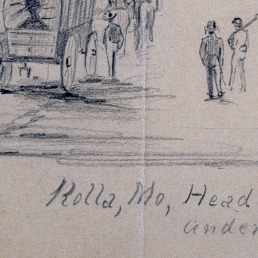 Rolla, Mo, Head
under